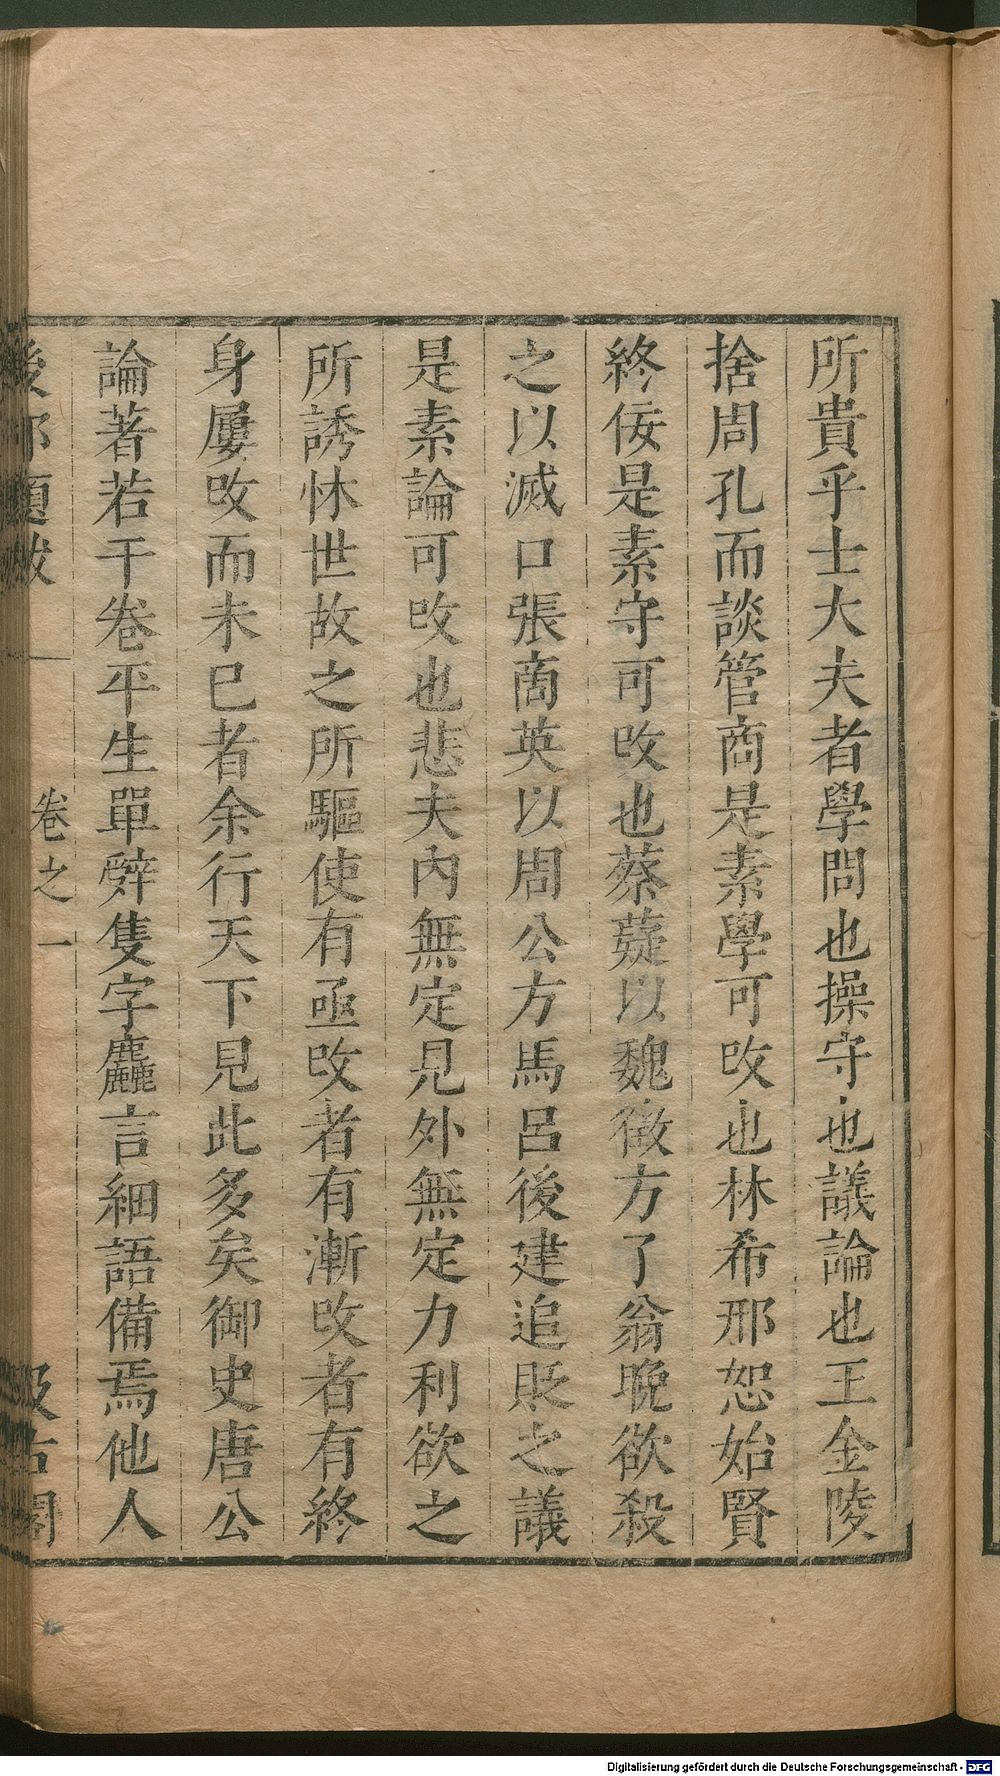 所貴乎士大夫者學問也操守也議論也王金陵
捨周孔而談管商是素學可攺也林希邢恕始賢
終佞是素守可攺也蔡薿以魏徵方了翁晚欲殺
之以滅口張商英以周公方馬呂後建追貶之議
是素論可攺也悲夫內無定見外無定力利欲之
所誘怵世故之所驅使有亟攺者有漸攺者有終
身屢攺而未巳者余行天下見此多矣御史唐公
論著若干卷平生單辤隻字麤言細語備焉他人
後邨題跋 卷之一 汲古閣
Digitalisierung gefördert durch die Deutsche Forschungsgemeinschaft - DFG